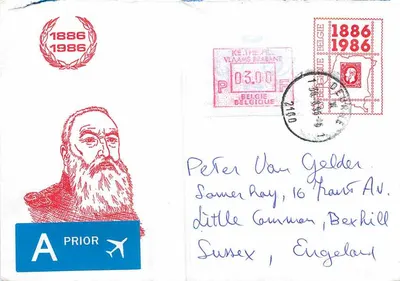 1886
1986
1886
1986
BELGIE
VLAAMS BRABANT
03,00
P
BELGIE
BELGIQUE
DEURNE
2100
Peter Van Gelder
16
Av.
Little Common, Bexhill
Sussex, Engeland
A PRIOR